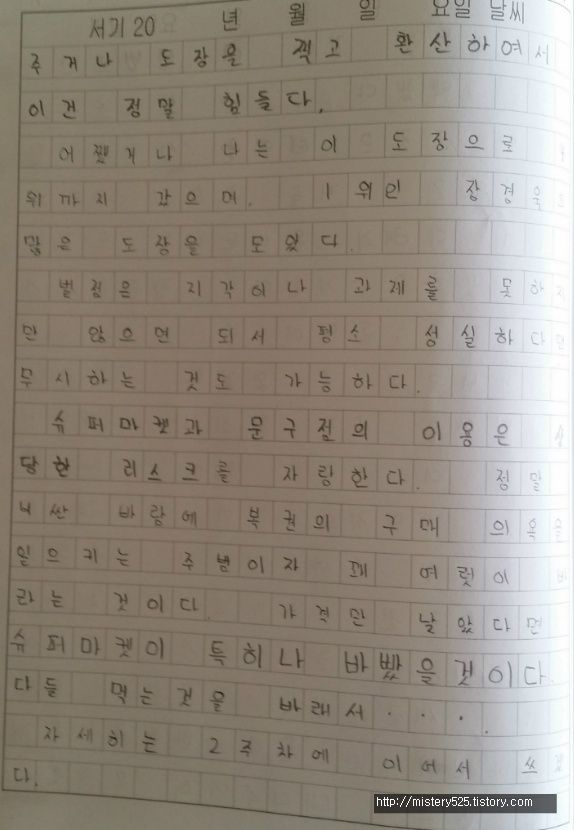 서기 20 년 월 일 요일 날씨
주거나 도장을 찍고 환산하여서
이건 정말 힘들다.
어쨌거나 나는 이 도장으로
위까지 갔으며. 1위인 장경은
많은 도장을 모았다.
벌점은 지각이나 과제를 못하지
만 않으면 되서 평소 성실하다면
무시하는 것도 가능하다.
슈퍼마켓과 문구점의 이용은 상
당한 리스크를 자랑한다. 정말
비싼 바람에 복권의 구매 의욕을
일으키는 주범이자 꽤 여럿이 바
라는 것이다. 가격만 낮았다면
슈퍼마켓이 특히나 바빴을 것이다.
다들 먹는것을 바래서...
자세히는 2주차에 이어서 쓰겠
다.
http://mistery525.tistory.com